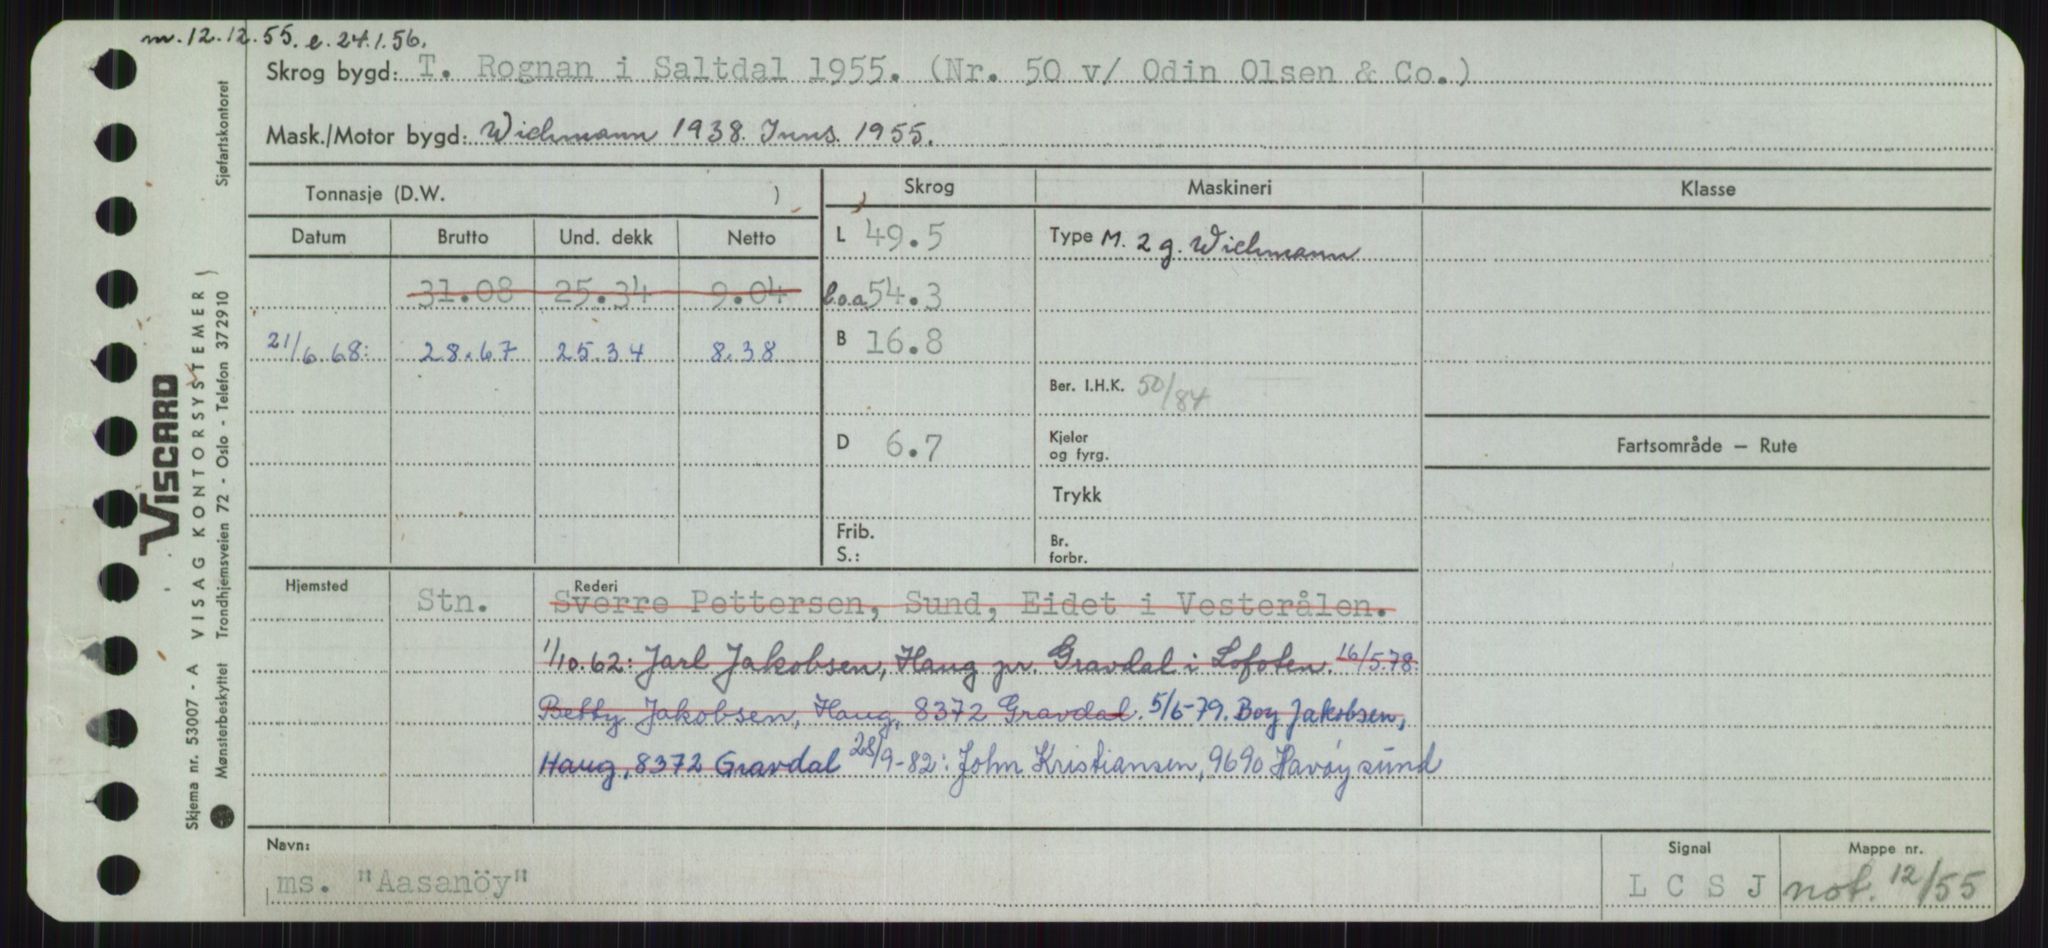 m. 12.12.55. e. 24.1.56.
Skrog bygd: T. Rognan i Saltdal 1955. (Nr. 50 v/ Odin Olsen & Co.)
Mask./Motor bygd: Wichmann 1938. Inns. 1955.
Tonnasje (D.W. )
Skrog
Maskineri
Klasse
Datum Brutto Und. dekk Netto
L 49.5
Type M. 2 g. Wichmann
31.08 25.34 9.04
l.o.a 54.3
21/6.68: 28.67 25.34 8.38
B 16.8
Ber. I.H.K. 50/84
D 6.7
Kjeler
og fyrg.
Fartsområde — Rute
Trykk
Frib.
S.:
Br.
forbr.
Hjemsted
Stn.
Rederi
Sverre Pettersen, Sund, Eidet i Vesterålen.
1/10.62: Jarl Jakobsen, Haug pr. Gravdal i Lofoten. 16/5.78:
Betty Jakobsen, Haug, 8372 Gravdal. 5/6-79. Boy Jakobsen,
Haug, 8372 Gravdal 28/9-82: John Kristiansen, 9690 Havøysund
Navn:
ms. "Aasanöy"
Signal
L C S J
Mappe nr.
not. 12/55
Skjema nr. 53007 - A VISAG KONTORSYSTEMER )
VISCARD
Mønsterbeskyttet Trondhjemsveien 72 - Oslo - Telefon 372910
Sjøfartskontoret